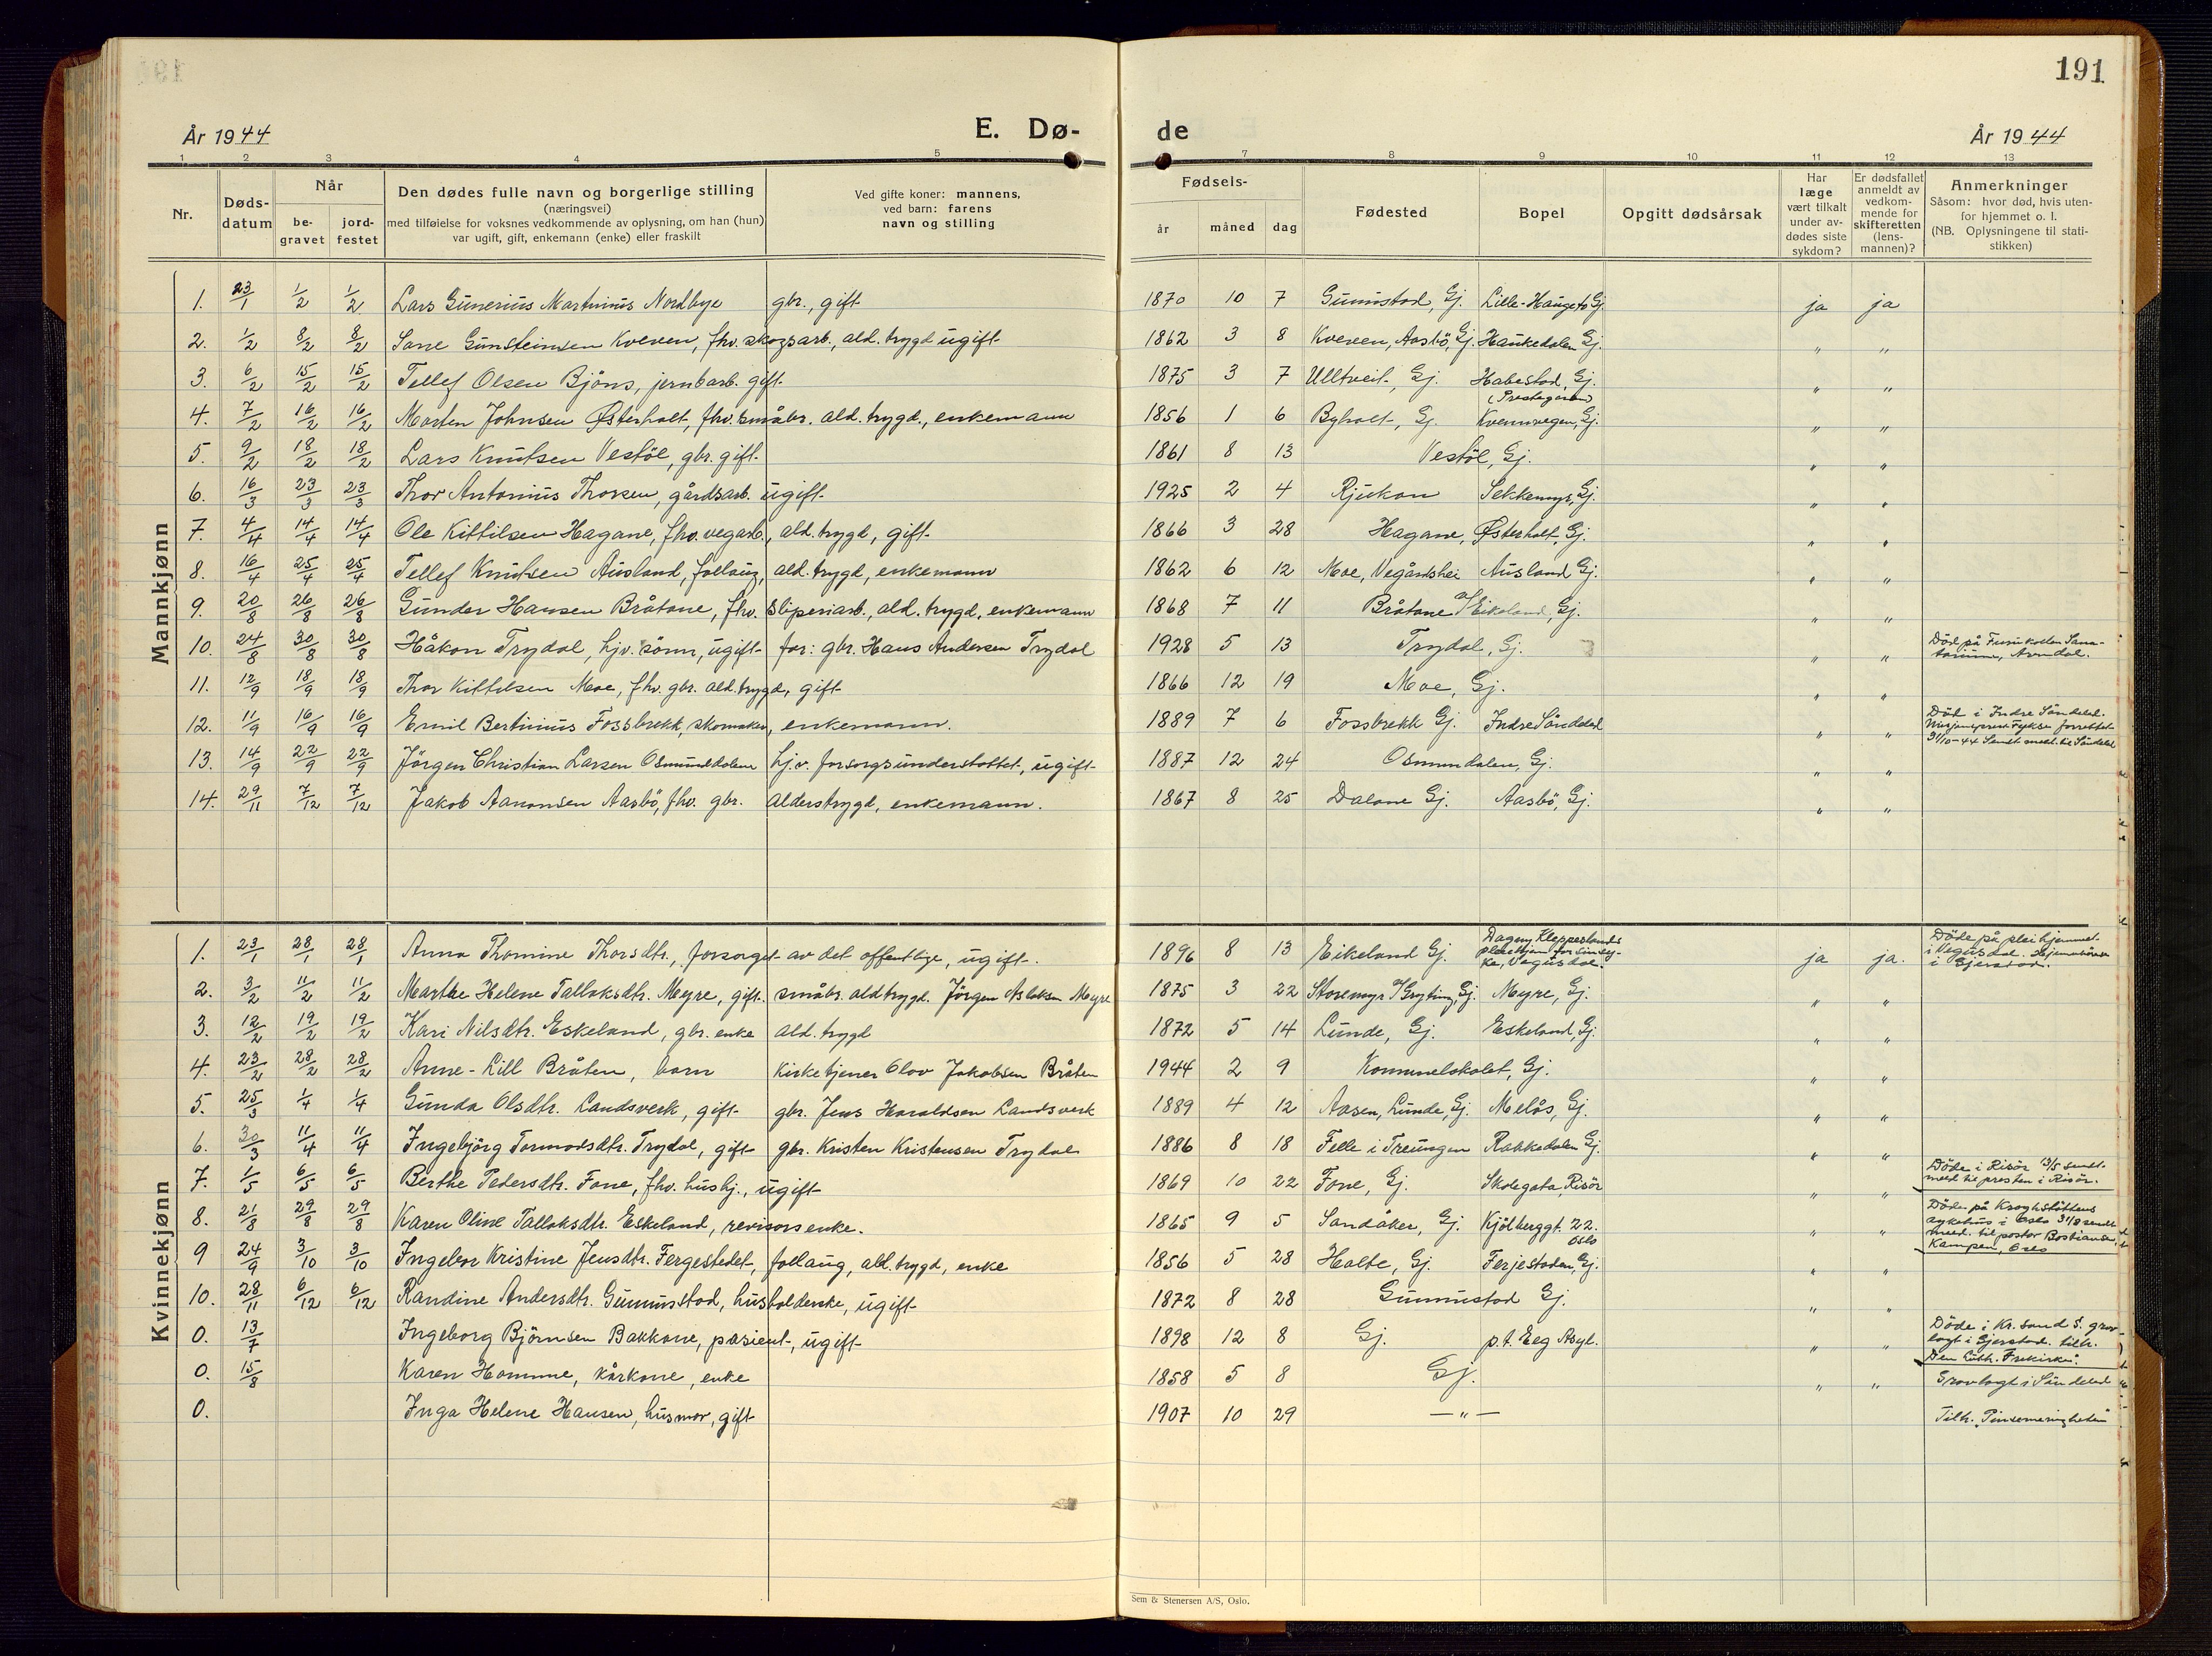 191
År 1944 E. Dø- de År 1944
1 2 3 4 5 7 8 9 10 11 12 13
Nr.
Døds-
datum
Når
be-
gravet
jord-
festet
Den dødes fulle navn og borgerlige stilling
(næringsvei)
med tilføielse for voksnes vedkommende av oplysning, om han (hun)
var ugift, gift, enkemann (enke) eller fraskilt
Ved gifte koner: mannens,
ved barn: farens
navn og stilling
Fødsels-
år måned dag
Fødested
Bopel
Opgitt dødsårsak
Har
læge
vært tilkalt
under av-
dødes siste
sykdom?
Er dødsfallet
anmeldt av
vedkom-
mende for
skifteretten
(lens-
mannen)?
Anmerkninger
Såsom: hvor død, hvis uten-
for hjemmet o. l.
(NB. Oplysningene til stati-
stikken)
Mannkjønn
1. 23/1 1/2 1/2 Lars Gunerius Martinius Nordbye gbr., gift 1870 10 7 Gunnstad, Gj. Lille-Haugeto Gj. ja ja
2. 1/2 8/2 8/2 Sane Gunsteinsen Kveven, fhv. skogsarb., ald. trygd ugift 1862 3 8 Kveven, Aasbö, Gj. Haukedalen Gj. " "
3. 6/2 15/2 15/2 Tellef Olsen Bjöns, jernbarb. gift. 1875 3 7 Ulltveit, Gj. Habestad, Gj. (Prestegården) " "
4. 7/2 16/2 16/2 Morten Johnsen Østerholt, fhv. småbr. ald. trygd., enkemann 1856 1 6 Byholt, Gj. Kvennvegen, Gj. " "
5. 9/2 18/2 18/2 Lars Knutsen Vestöl, gbr. gift. 1861 8 13 Vestöl, Gj. " "
6. 16/3 23/3 23/3 Thor Antonius Thorsen, gårdsarb. ugift 1925 2 4 Rjukan Sekkemyr, Gj. " "
7. 4/4 14/4 14/4 Ole Kittilsen Hagane, fhv. vegarb., ald. trygd, gift 1866 3 28 Hagane, Østerholt, Gj. " "
8. 16/4 25/4 25/4 Tellef Knutsen Ausland, follaug, ald. trygd, enkemann 1862 6 12 Moe, Vegårdshei Ausland Gj. " "
9. 20/8 26/8 26/8 Gunder Hansen Bråtane, fhv. sliperiarb., ald. trygd, enkemann 1868 7 11 Bråtane a/ Eikeland, Gj. " "
10. 24/8 30/8 30/8 Håkon Trydal, hjv. sönn, ugift far: gbr. Hans Andersen Trydal 1928 5 13 Trydal, Gj. " " Död på Furukollen Sana-
torium, Arendal.
11. 12/9 18/9 18/9 Thor Kittelsen Moe, fhv. gbr. ald. trygd, gift 1866 12 19 Moe, Gj. " "
12. 11/9 16/9 16/9 Emil Bertinius Fossbrekk, skomaker, enkemann. 1889 7 6 Fossbrekk Gj. Indre Söndeled " " Död i Indre Söndeled.
forrettet
31/10-44 Sendt meld. til Söndeled
13. 14/9 22/9 22/9 Jörgen Christian Larsen Osmundalen hj.v. forsorgsunderstöttet, ugift 1887 12 24 Osmundalen, Gj. " "
14. 29/11 7/12 7/12 Jakob Aanonsen Aasbö, fhv. gbr. alderstrygd, enkemann. 1867 8 25 Dalane Gj. Aasbö, Gj. " "
Kvinnekjønn
1. 23/1 28/1 28/1 Anna Thomine Thorsdtr., forsorget av det offentlige, ugift. 1896 8 13 Eikeland Gj. Dagny Kleppeslands
pleiehjem for sinnsy-
ke, Vegusdal. ja ja. Döde på pleihjemmet
i Vegusdal. Hjemmehörende
i Gjerstad.
2. 3/2 11/2 11/2 Marthe Helene Tallaksdtr. Meyre, gift. småbr. aldtrygd. Jörgen Aslaksen Myre 1875 3 22 Storemyr a/ Gryting, Gj. Myre, Gj. " "
3. 12/2 19/2 19/2 Kari Nilsdtr. Eskeland, gbr. enke ald. trygd 1872 5 14 Lunde, Gj. Eskeland, Gj. " "
4. 23/2 28/2 28/2 Anne-Lill Bråten, barn Kirketjener Olav Jakobsen Bråten 1944 2 9 Kommunelokalet, Gj. " "
5. 25/3 1/4 1/4 Gunda Olsdtr. Landsverk, gift gbr. Jens Haraldsen Landsverk 1889 4 12 Aasen, Lunde, Gj. Melås, Gj. " "
6. 30/3 11/4 11/4 Ingebjörg Tormodsdtr. Trydal, gift gbr. Kristen Kristensen Trydal 1886 8 18 Felle i Treungen Rakkedalen Gj. " "
7. 1/5 6/5 6/5 Berthe Pedersdtr. Fone, fhv. hushj., ugift 1869 10 22 Fone, Gj. Skolegata, Risör " " Döde i Risör 13/5 sendt
meld til presten i Risör.
8. 21/8 29/8 29/8 Karen Oline Tallaksdtr. Eskeland, revisorsenke. 1865 9 5 Sandåker, Gj. Kjölberggt. 22. Oslo " " Döde på Kroghstöttens
sykehus i Oslo 31/8 sendt
meld. til pastor Bostiansen,
Kampen, Oslo
9 24/9 3/10 3/10 Ingebor Kristine Jensdtr. Fergestedet, follaug, ald. trygd, enke 1856 5 28 Holte, Gj. Ferjestaden, Gj. " "
10. 28/11 6/12 6/12 Randine Andersdtr. Gunnustad, husholderske, ugift 1872 8 28 Gunnustad Gj. " "
0. 13/7 Ingeborg Björnsen Bakkane, pasient, ugift 1898 12 8 Gj. p.t. Eeg Asyl. " " Döde i Kr. sand S. grav-
lagt i Gjerstad. tilh.
Den Luth. Frikirke.
0. 15/8 Karen Homme, kårkone, enke 1858 5 8 Gj. " " Gravlagt i Söndeled
0. Inga Helene Hansen, husmor, gift 1907 10 29 — " — Tilh. "Pinsemenigheten"
Sem & Stenersen A/S, Oslo.